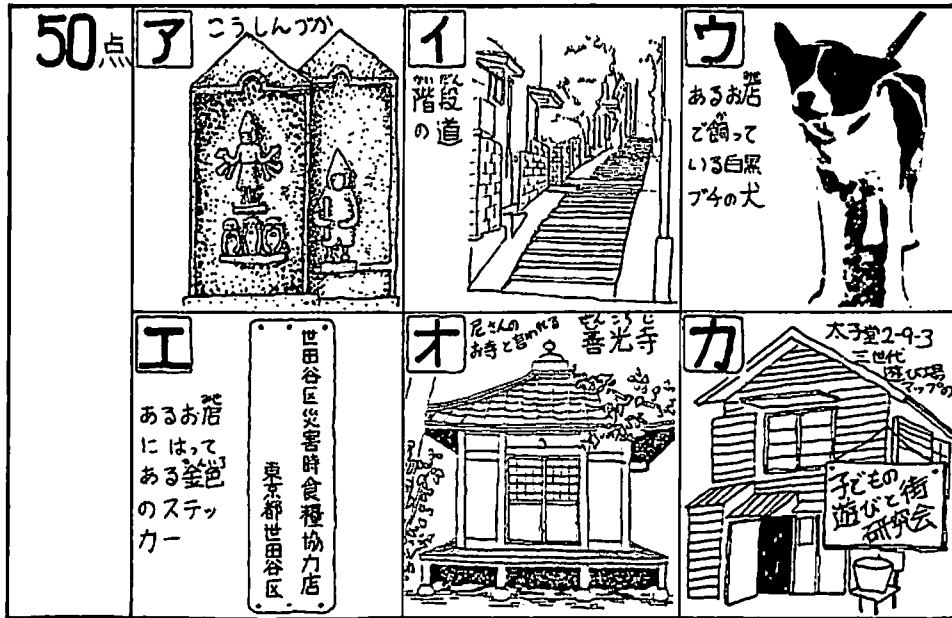 50点
ア
こうしんづか
イ
階段
かいだん
の道
ウ
あるお店
みせ
で飼って
か
いる白黒
ブチの犬
エ
あるお店
みせ
にはって
ある金色
きんいろ
のステッ
カー
世田谷区災害時食糧協力店
東京都世田谷区
オ
尼さんの
お寺と言われる
善光寺
ぜんこうじ
カ
太子堂2-9-3
三世代
遊び場
マップの
子どもの
遊びと街
研究会